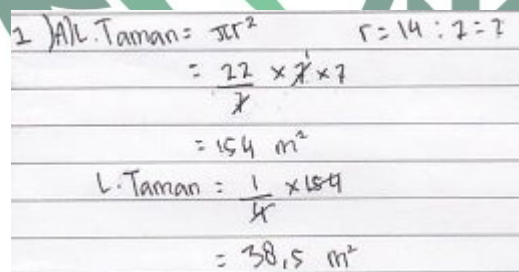 1 )A)L.Taman = πr² r = 14 : 2 = 7
= 22/7 × 7 × 7
= 154 m²
L.Taman = 1/4 × 154
= 38,5 m²